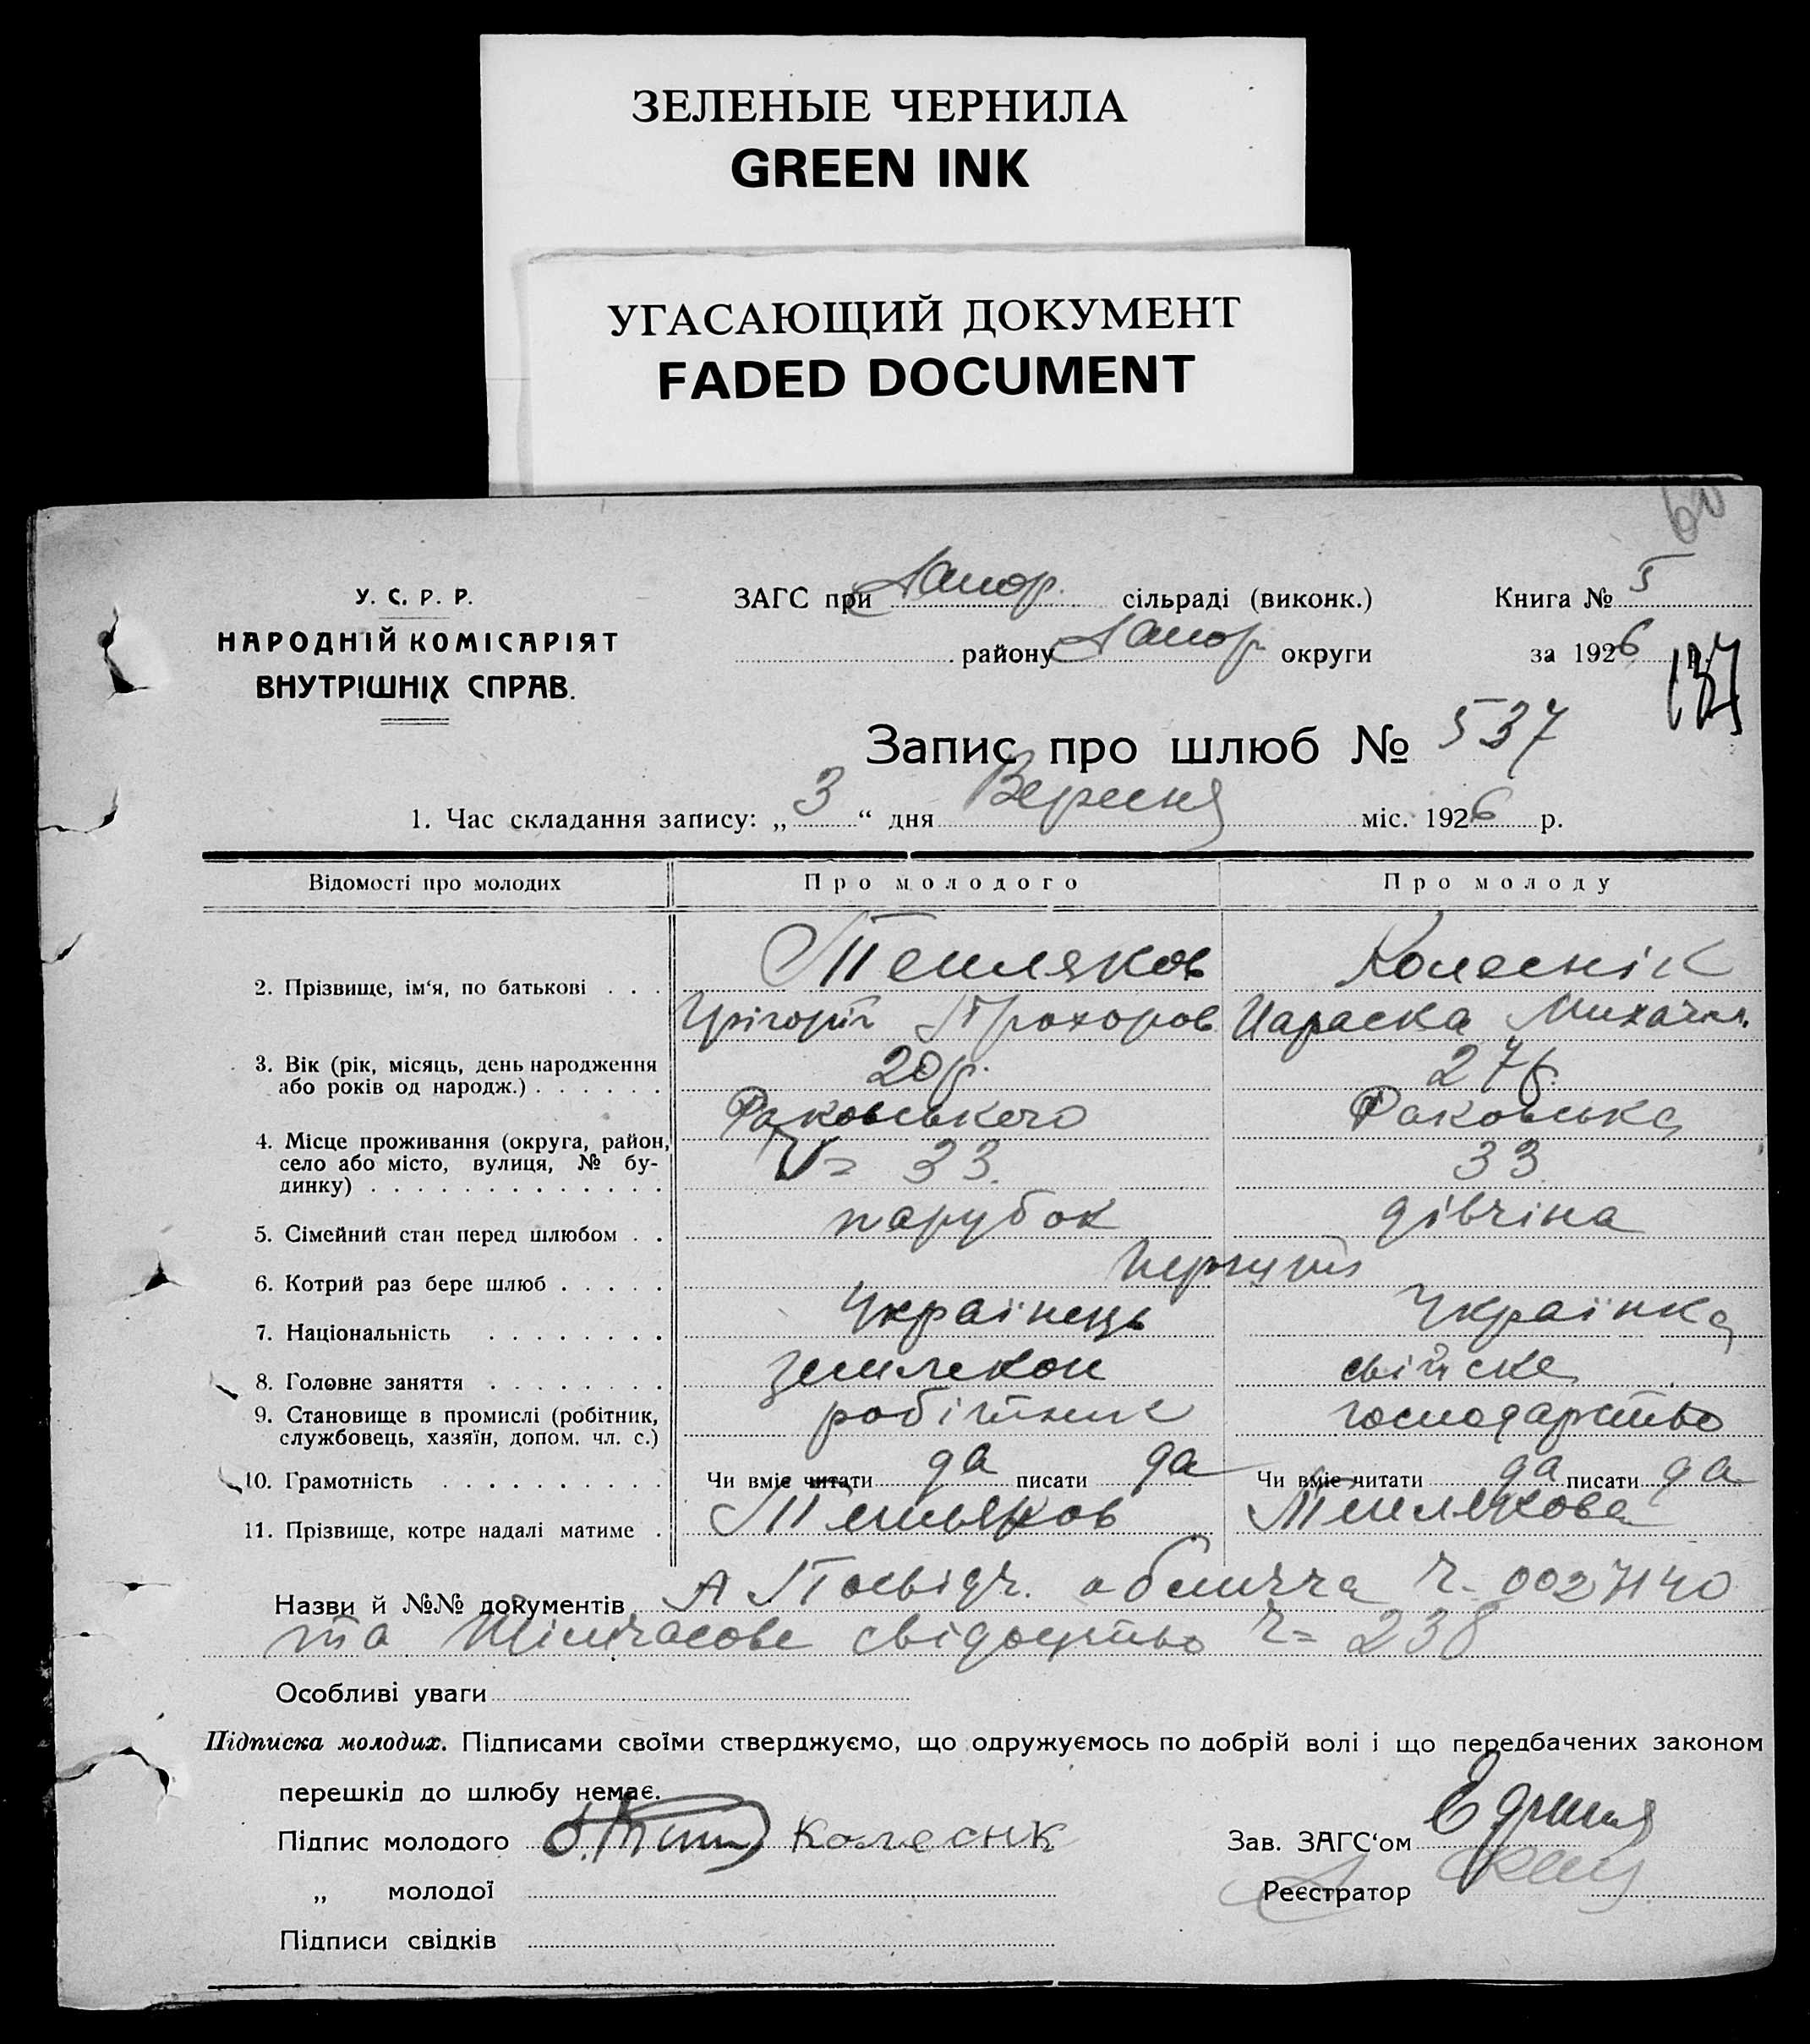 ЗЕЛЕНЫЕ ЧЕРНИЛА
GREEN INK
УГАСАЮЩИЙ ДОКУМЕНТ
FADED DOCUMENT
60
У. С. Р. Р.
НАРОДНІЙ КОМІСАРІЯТ
ВНУТРІШНІХ СПРАВ.
ЗАГС при Запор. сільраді (виконк.)
Книга № 5
району Запор. округи
за 1926 р.
137
Запис про шлюб № 537
1. Час складання запису: „ 3 “ дня Вересня міс. 1926 р.
Відомості про молодих Про молодого Про молоду
2. Прізвище, ім‘я, по батькові . . . Тепляков Колеснік
Грігорій Прохоров. Параска Михайл.
3. Вік (рік, місяць, день народження або років од народж.) . . . . . . 20 р. 27 р.
4. Місце проживання (округа, район, село або місто, вулиця, № будинку) . . . . . . . . . . . . . Раковського Раковська
33. 33
5. Сімейний стан перед шлюбом . . парубок дівчіна
6. Котрий раз бере шлюб . . . . . Перший
7. Національність . . . . . . . . Українець Українка
8. Головне заняття . . . . . . . . землекоп свійске
9. Становище в промислі (робітник, службовець, хазяїн, допом. чл. с.) робітник господарство
10. Грамотність . . . . . . . . . . Чи вміє читати да писати да Чи вміє читати да писати да
11. Прізвище, котре надалі матиме . Тепляков Теплякова
Назви й №№ документів А Посвідч. обличча Ч- 0027140
та Тімчасове свідоцтво Ч= 238
Особливі уваги
Підписка молодих. Підписами своїми стверджуємо, що одружуємось по добрій волі і що передбачених законом
перешкід до шлюбу немає.
Підпис молодого Колеснк
Зав. ЗАГС‘ом
„ молодої
Реєстратор
Підписи свідків